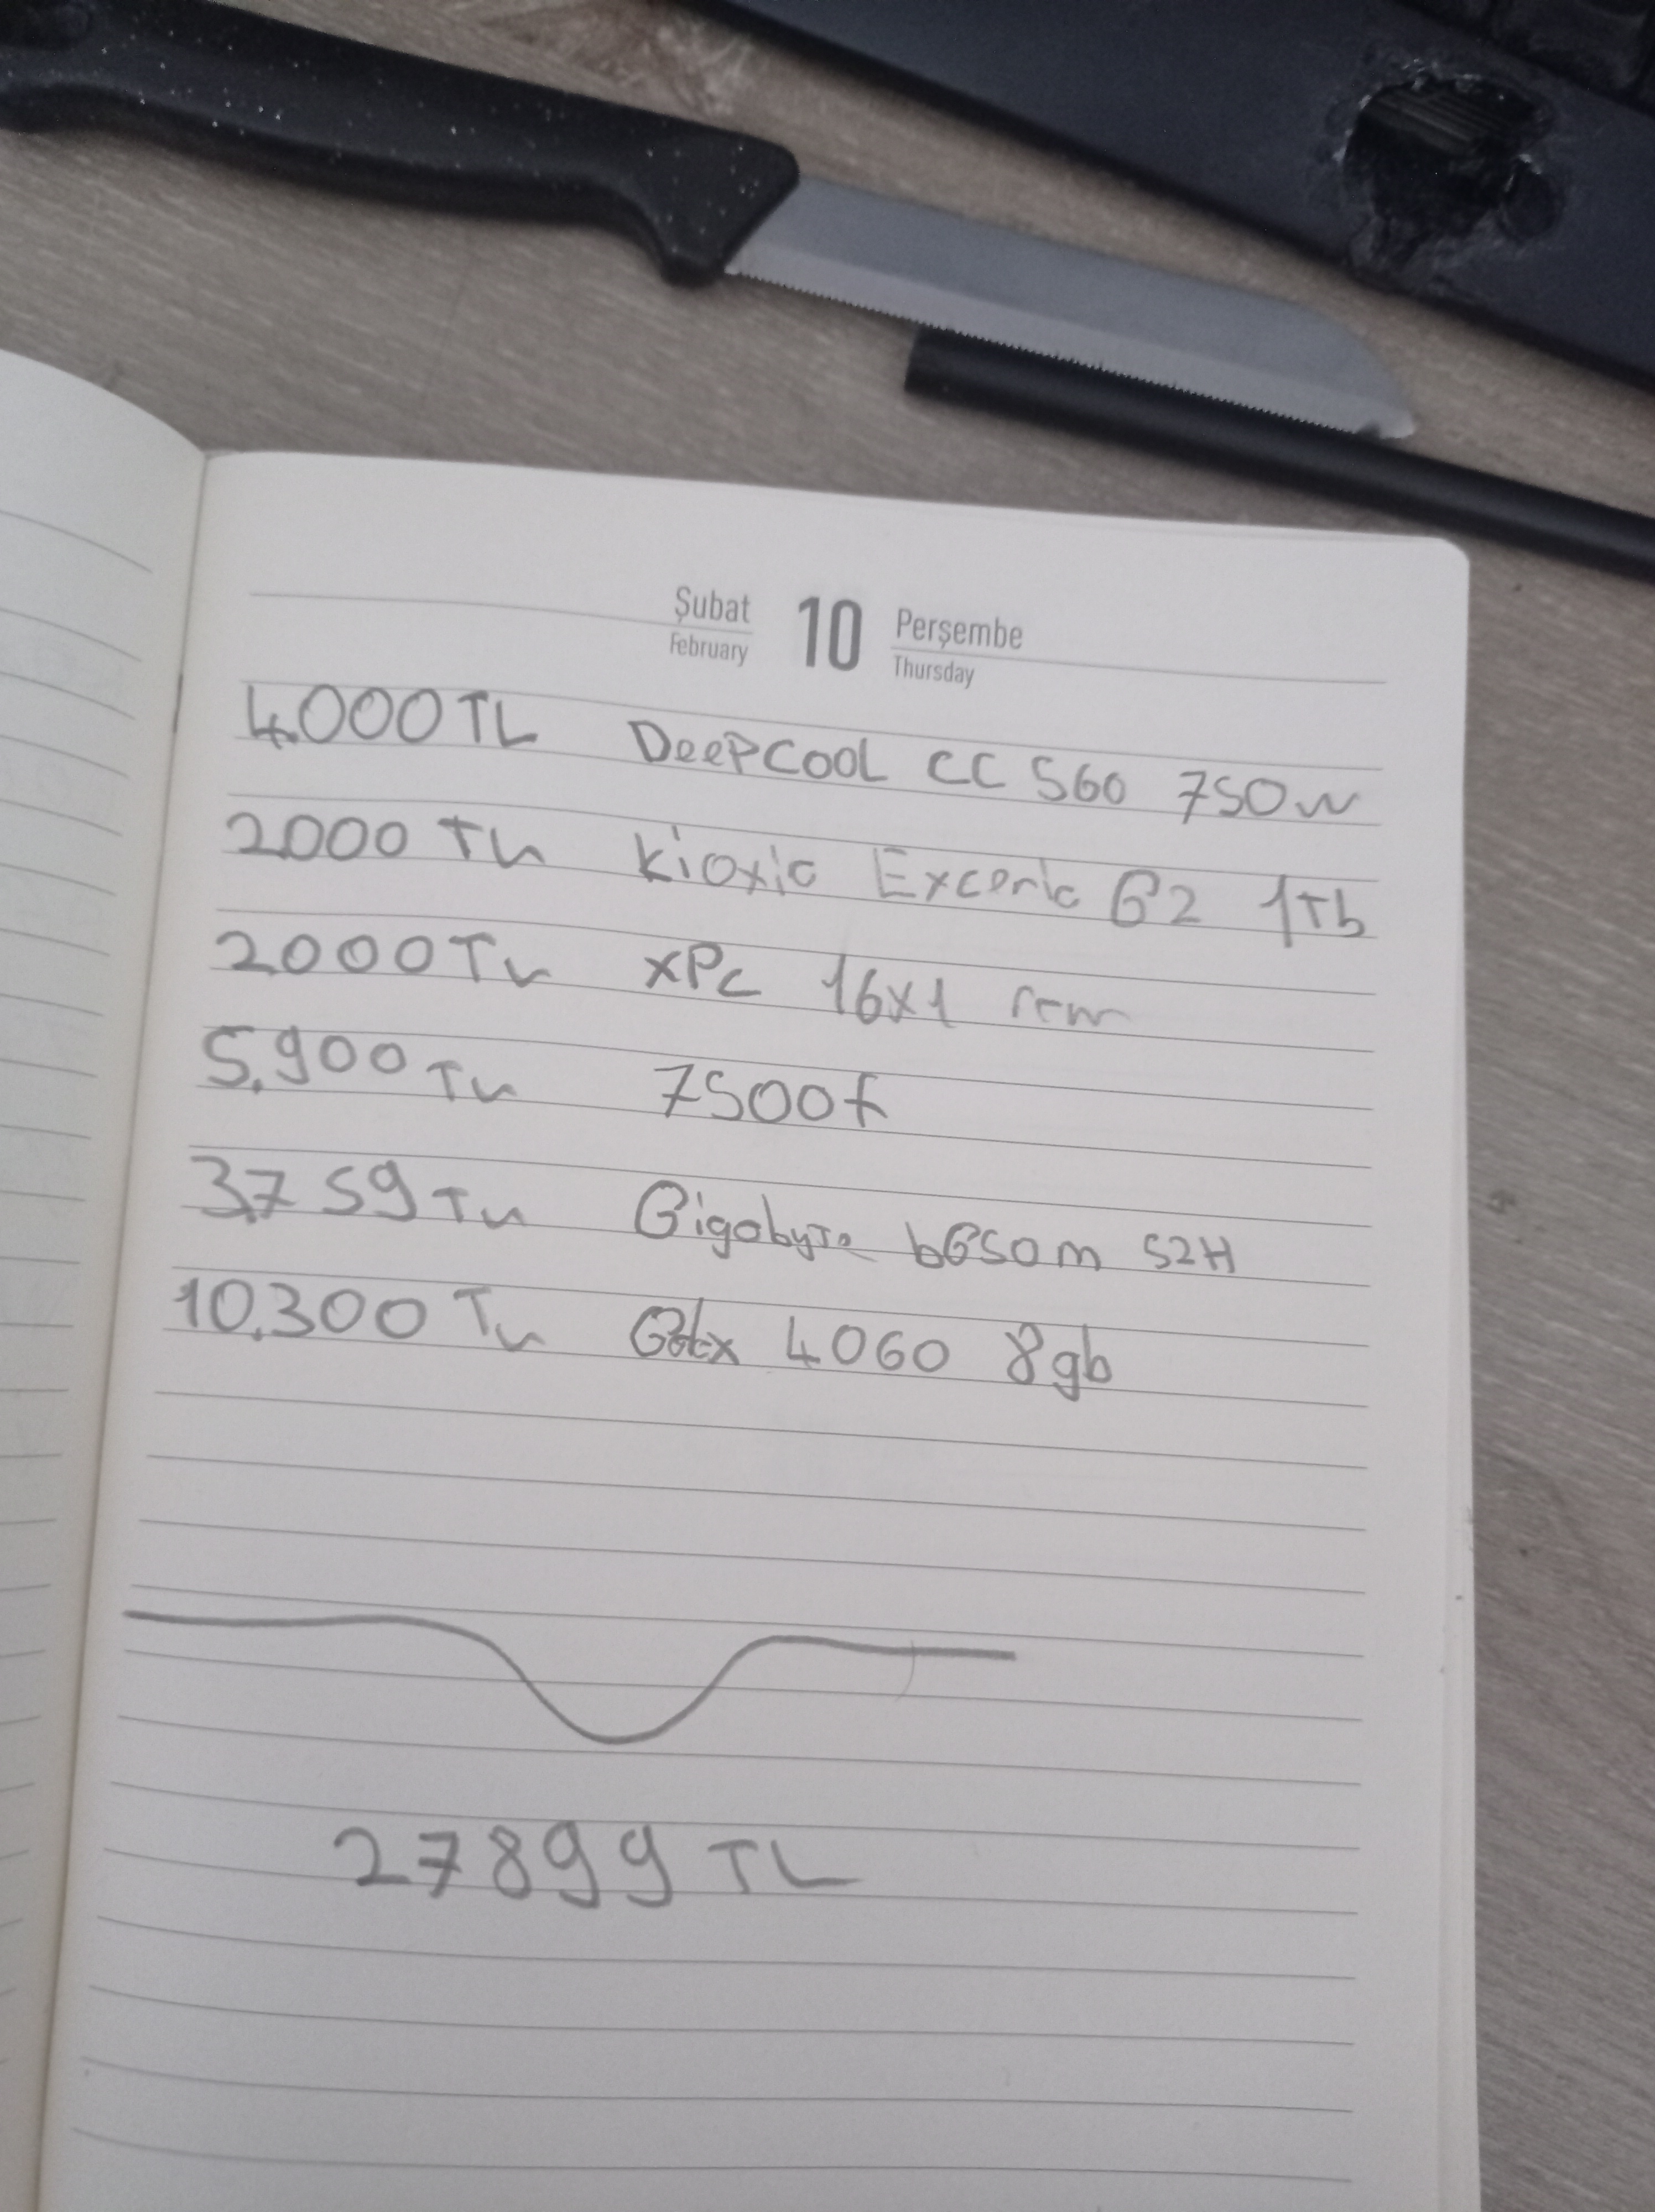 Şubat 10 Perşembe
February Thursday
4.000 TL DeePCooL CC 560 750w
2.000 TL kioxia Exceria G2 1Tb
2.000 TL xPG 16x1 ram
5.900 TL 7500f
3.759 TL Gigabyte b650m S2H
10.300 TL 4060 8gb
27899 TL